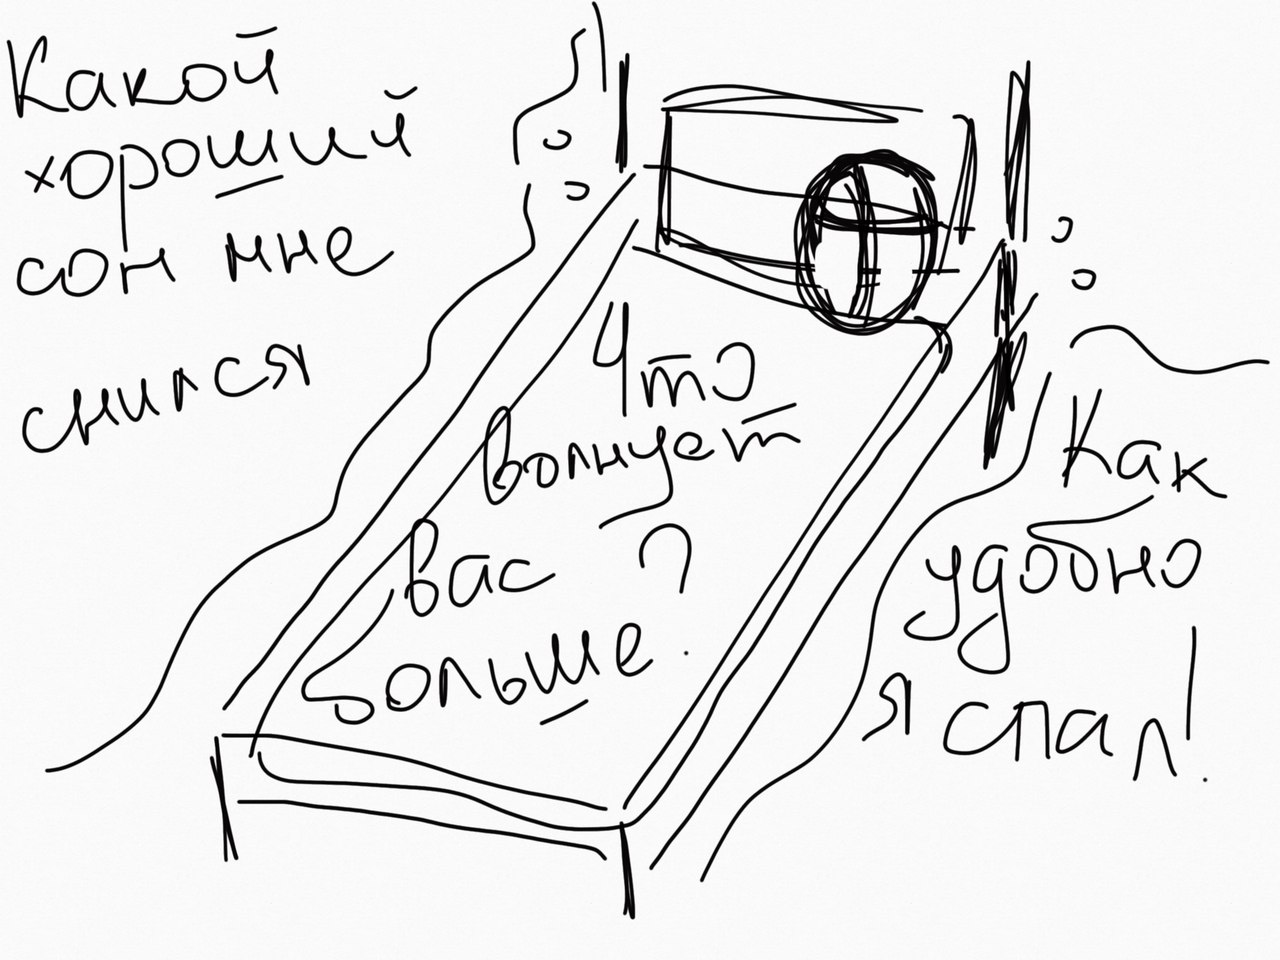 Какой
хороший
сон мне
снился
Что
волнует
вас ?
больше.
Как
удобно
я спал!